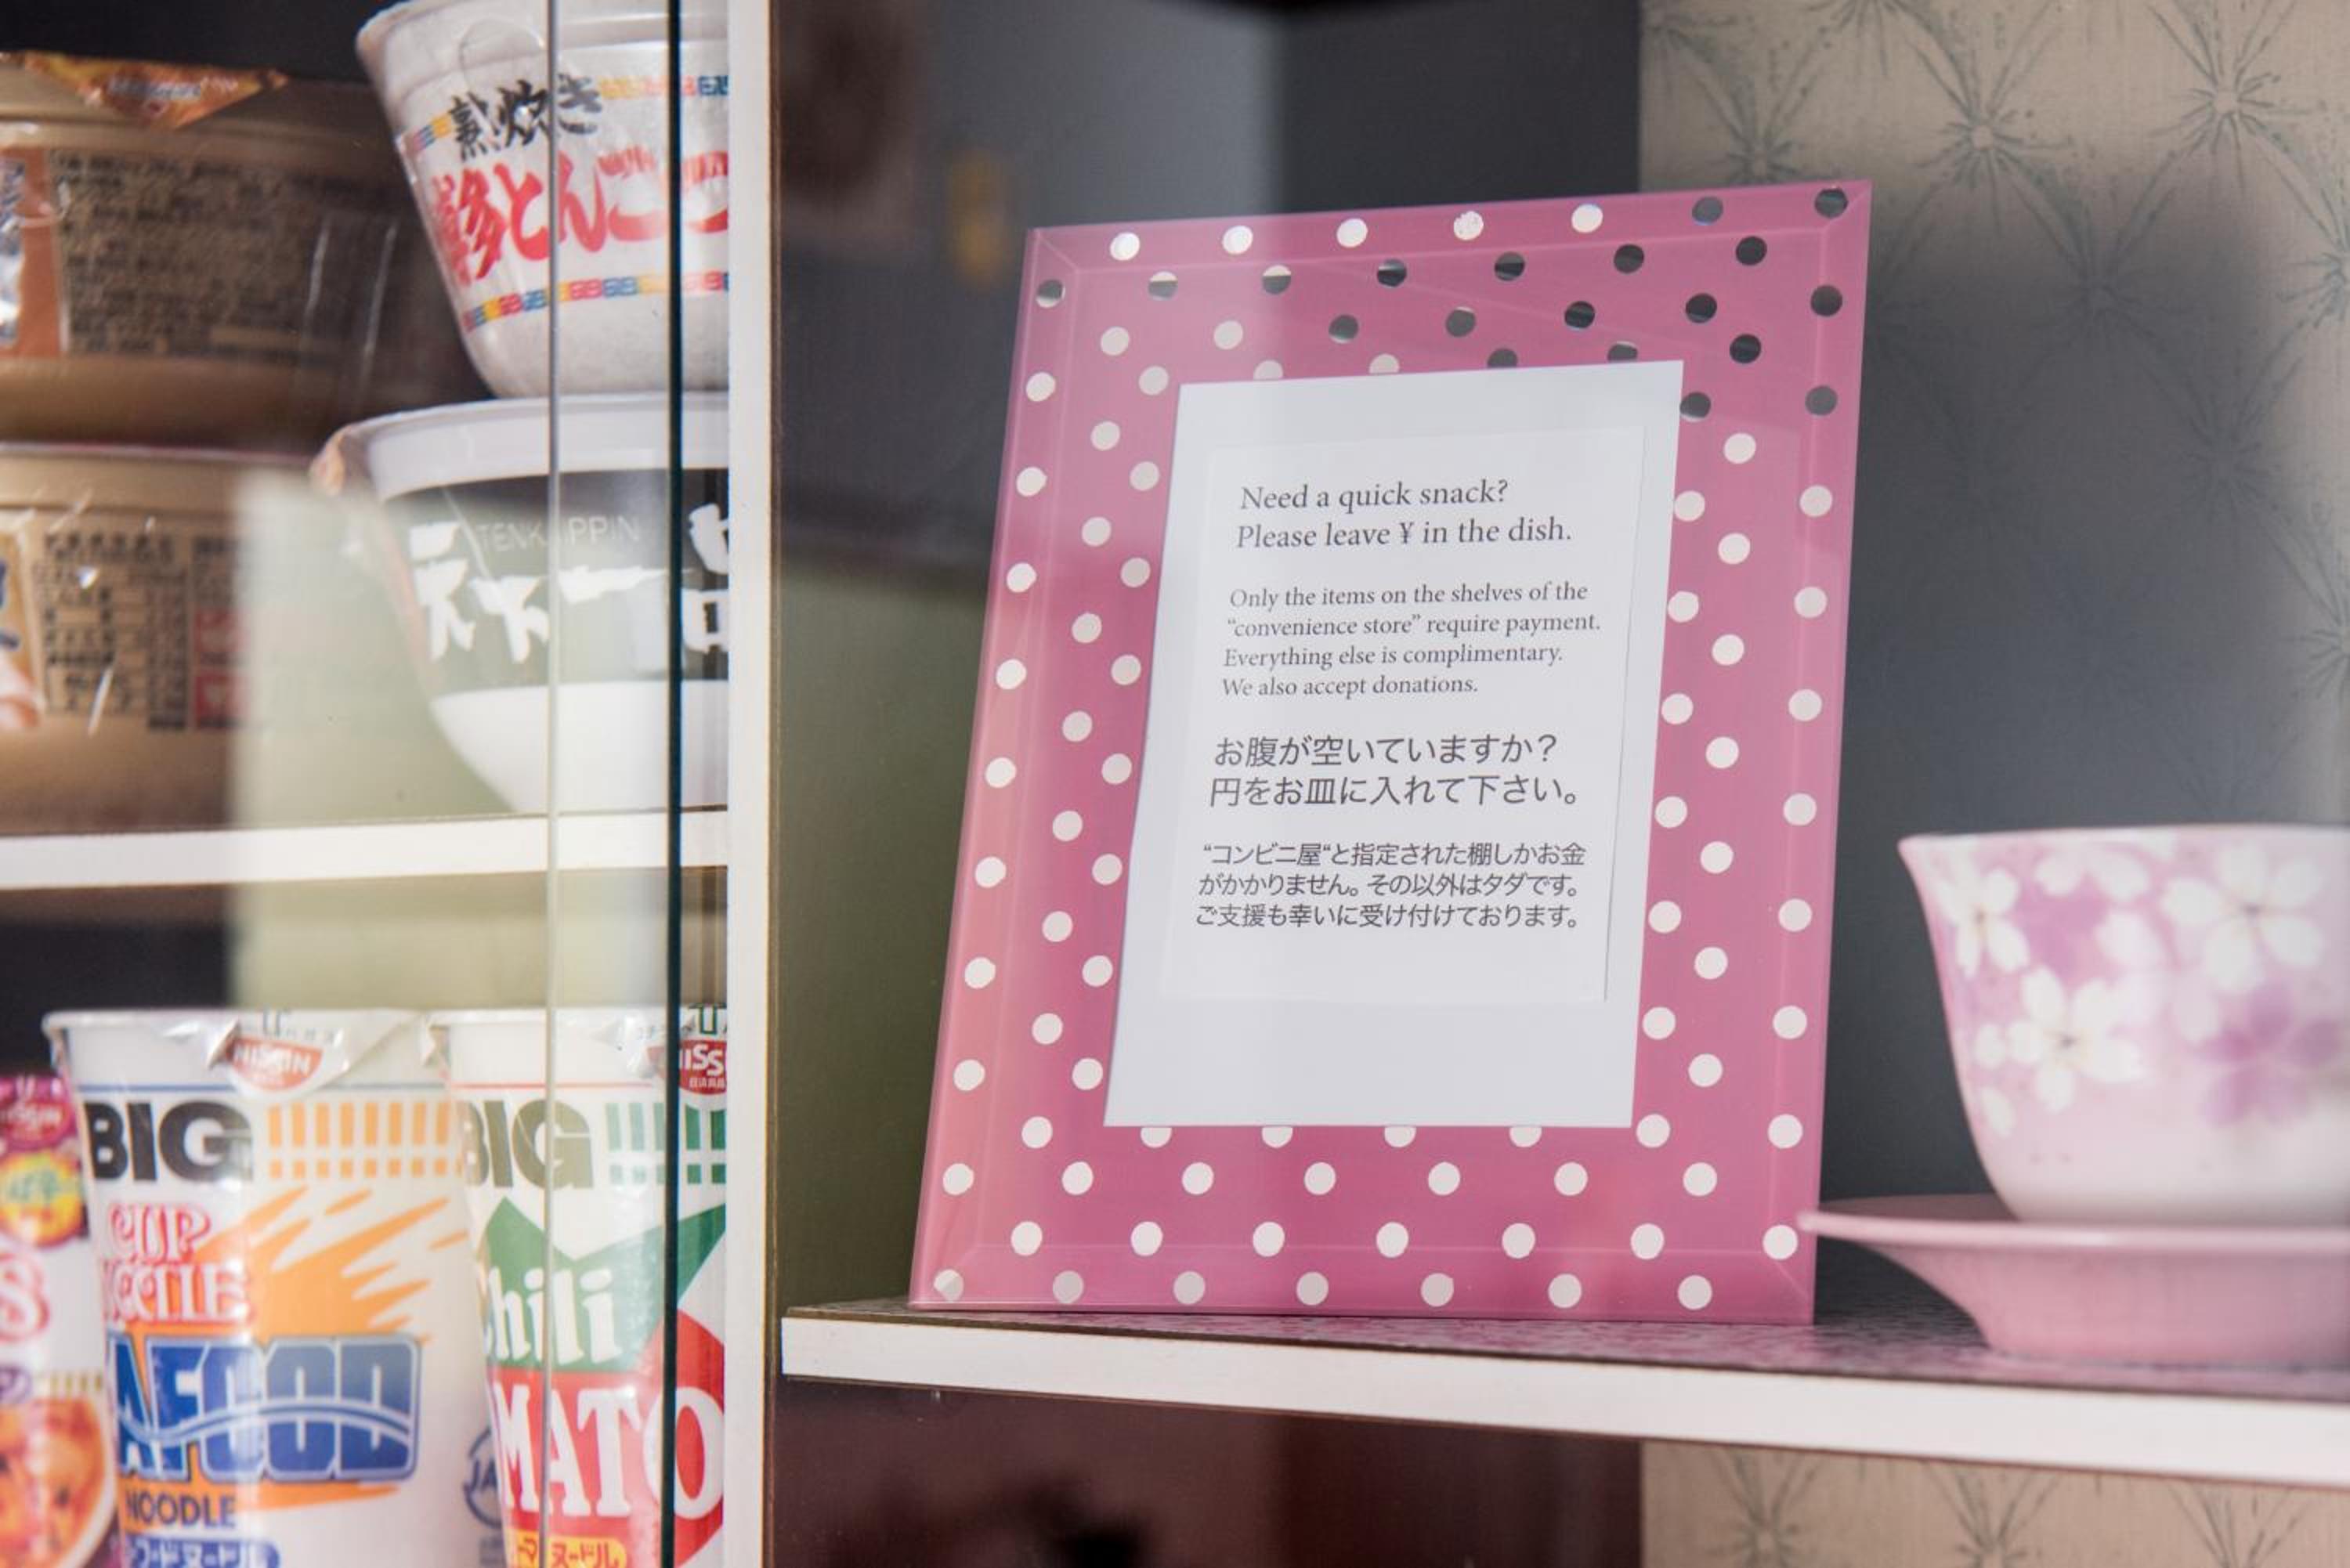 熟炊き
博多とんこつ
TENKAIPPIN
天下一品
NISSIN
BIG
CUP
NOODLE
SEAFOOD
NOODLE
NISSIN
BIG
Chili
TOMATO
Need a quick snack?
Please leave ¥ in the dish.
Only the items on the shelves of the
“convenience store” require payment.
Everything else is complimentary.
We also accept donations.
お腹が空いていますか？
円をお皿に入れて下さい。
“コンビニ屋“と指定された棚しかお金
がかかりません。その以外はタダです。
ご支援も幸いに受け付けております。